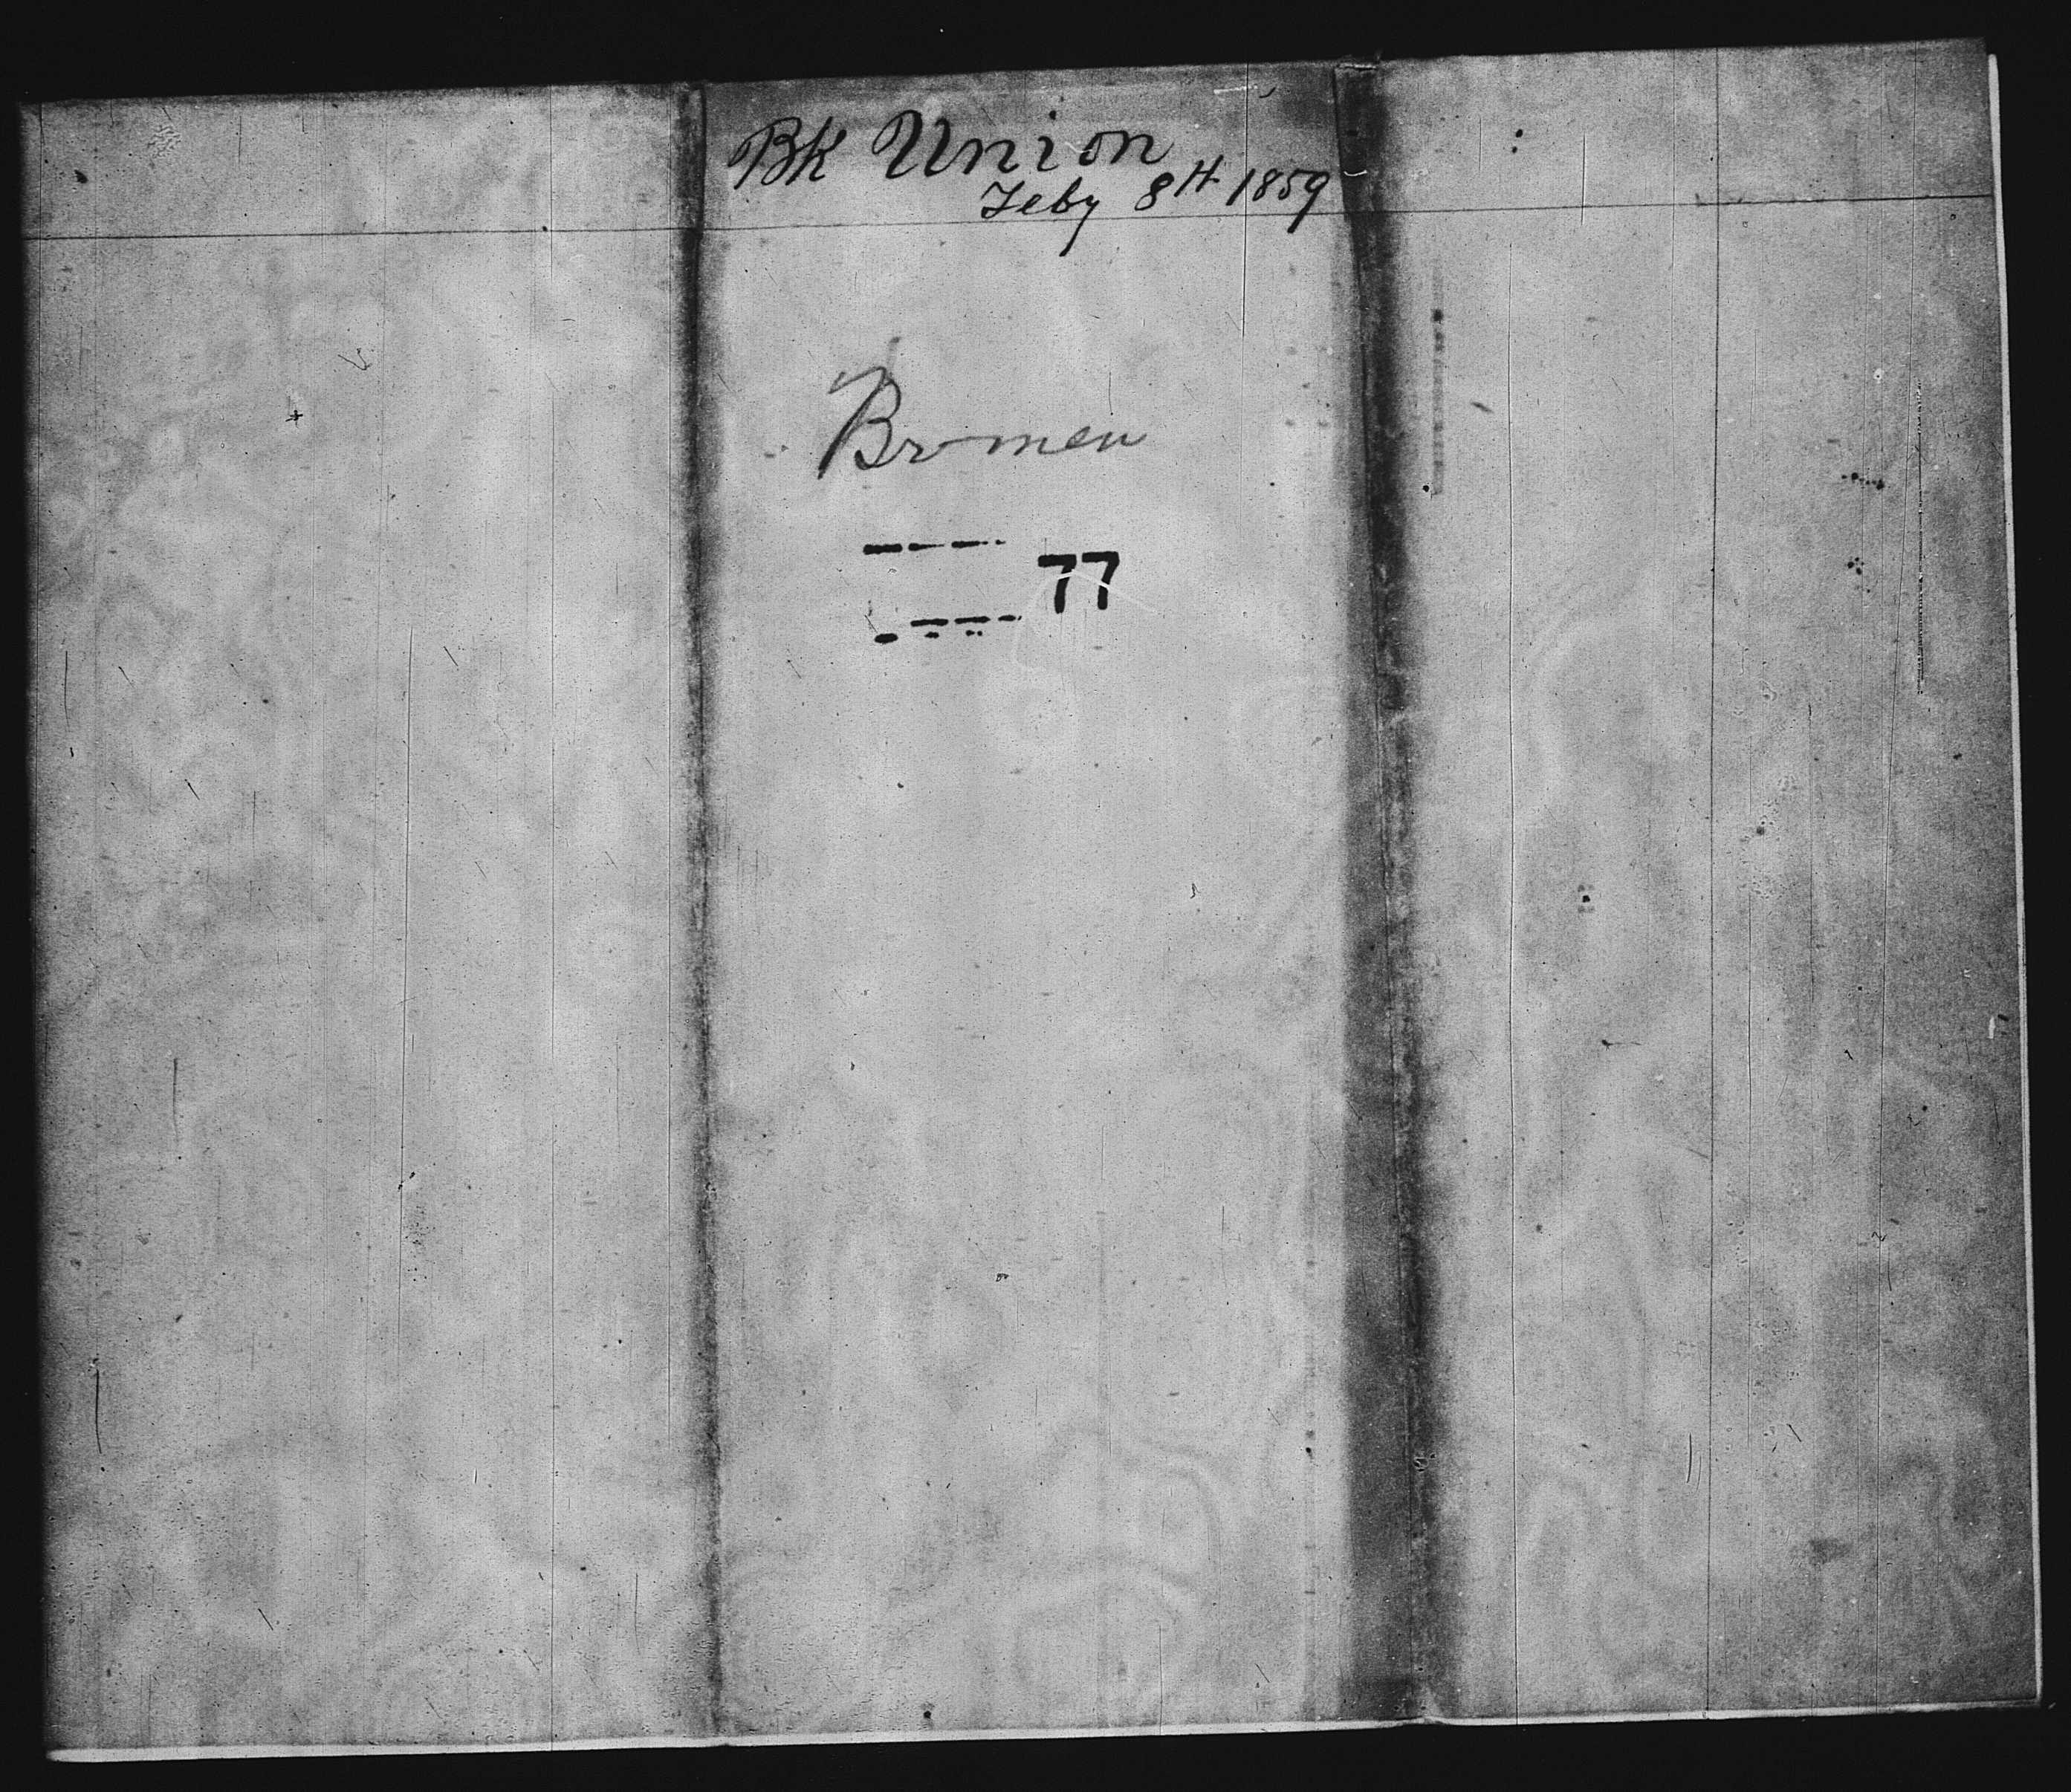 Bk Union
Feby 8th 1859
Bremen
77